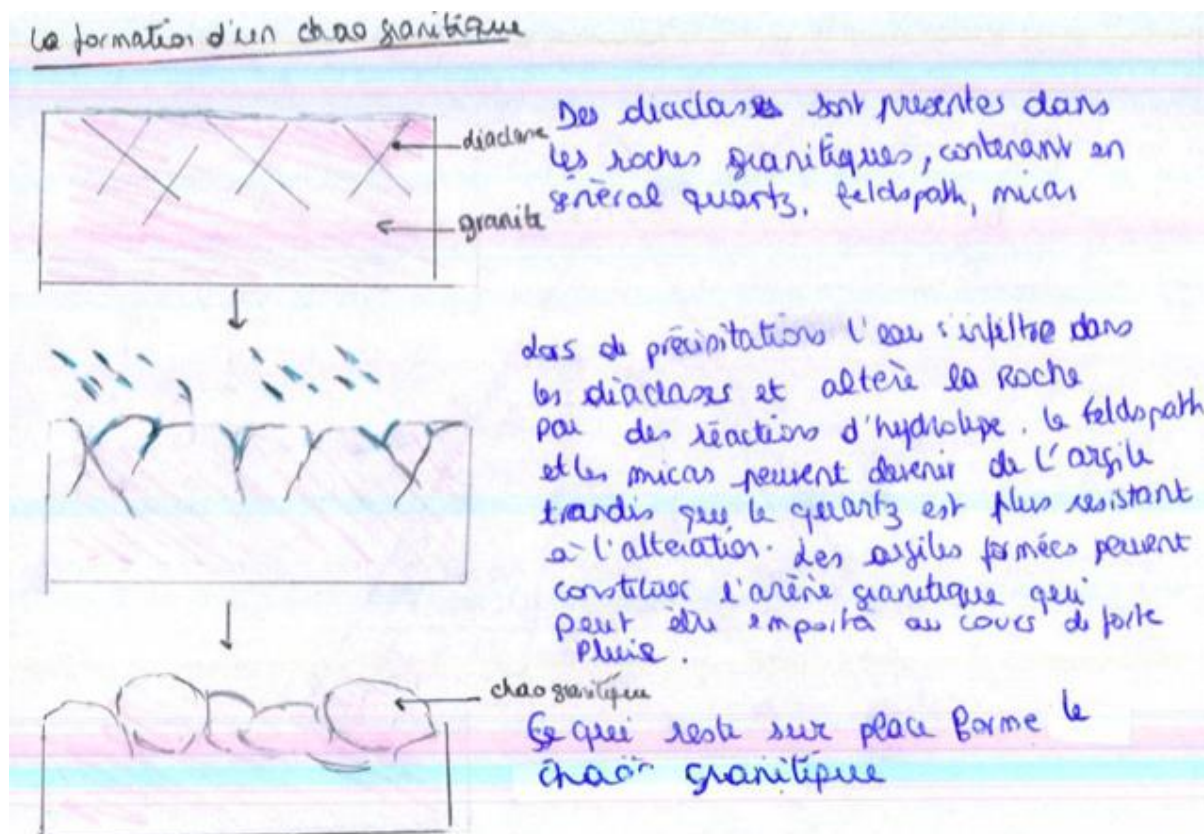 la formation d'un chao granitique
diaclase
granite
Des diaclases sont presentes dans
les roches granitiques, contenant en
général quartz, feldspath, micas
Lors de précipitations l'eau s'infiltre dans
les diaclases et altère la Roche
par des réactions d'hydrolyse. le feldspath
et les micas peuvent devenir de l'argile
trandis que le quartz est plus resistant
à l'alteration. Les argiles formées peuvent
constituer l'arène granitique qui
peut être emporta au cours de forte
pluie.
chao granitique
Ce qui reste sur place forme le
chaos granitique